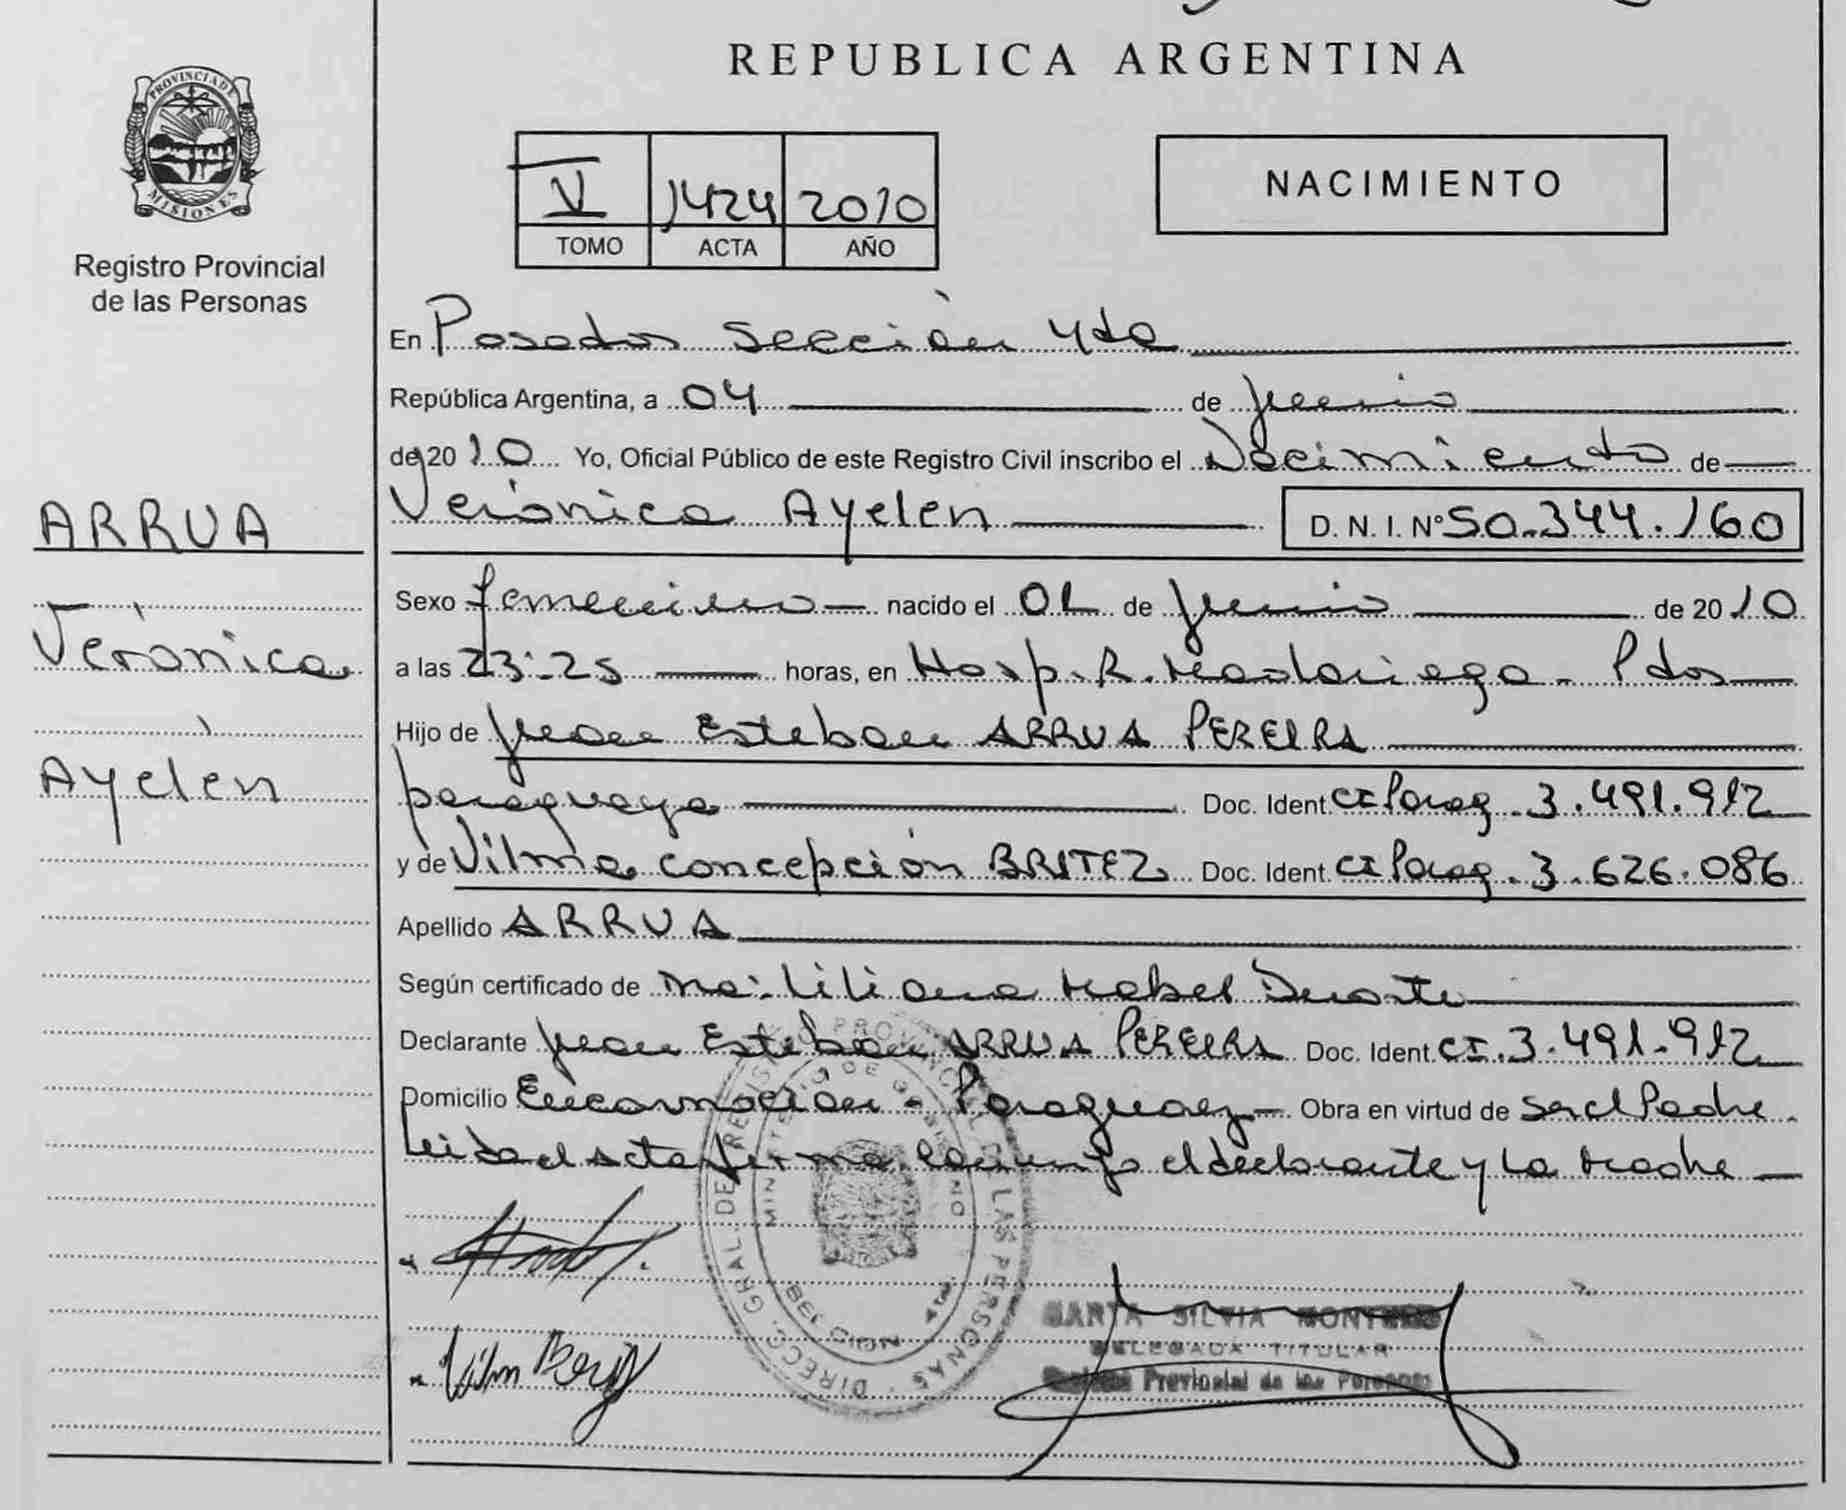 PROVINCIA DE
MISIONES
Registro Provincial
de las Personas
ARRUA
Verónica
Ayelén
REPUBLICA ARGENTINA
V 1424 2010
TOMO ACTA AÑO
NACIMIENTO
En Posadas Sección 4ta
República Argentina, a 04 de junio
de 2010 Yo, Oficial Público de este Registro Civil inscribo el Nacimiento de
Verónica Ayelén D. N. I. Nº 50.344.160
Sexo femenino nacido el 01 de junio de 2010
a las 23:25 horas, en Hosp. R. Madariaga - Pdas
Hijo de Juan Esteban ARRUA PEREIRA
paraguaya Doc. Ident. CI Parag. 3.491.912
y de Vilma Concepción BRITEZ Doc. Ident. CI Parag. 3.626.086
Apellido ARRUA
Según certificado de Liliana Mabel Duarte
Declarante Juan Esteban ARRUA PEREIRA Doc. Ident CI. 3.491.912
Domicilio Encarnación - Paraguay Obra en virtud de ser el Padre.
Leida el acta firma conmigo el declarante y la madre
DIRECC. GRAL. DE REGISTRO PROVINCIAL DE LAS PERSONAS
MINISTERIO DE GOBIERNO
SECCION 4ta.
SILVIA
DELEGADA TITULAR
Provincial de las Personas